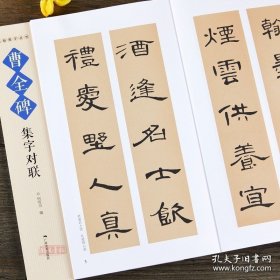 曹全碑
集字对联
酒逢名士飲
禮愛野人真
煙雲供養宜
孔夫子旧书网